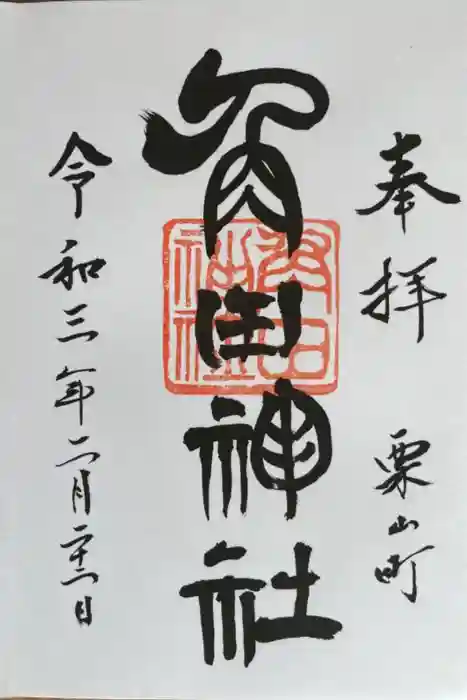 奉拝　栗山町
角田神社
令和三年二月二十二日